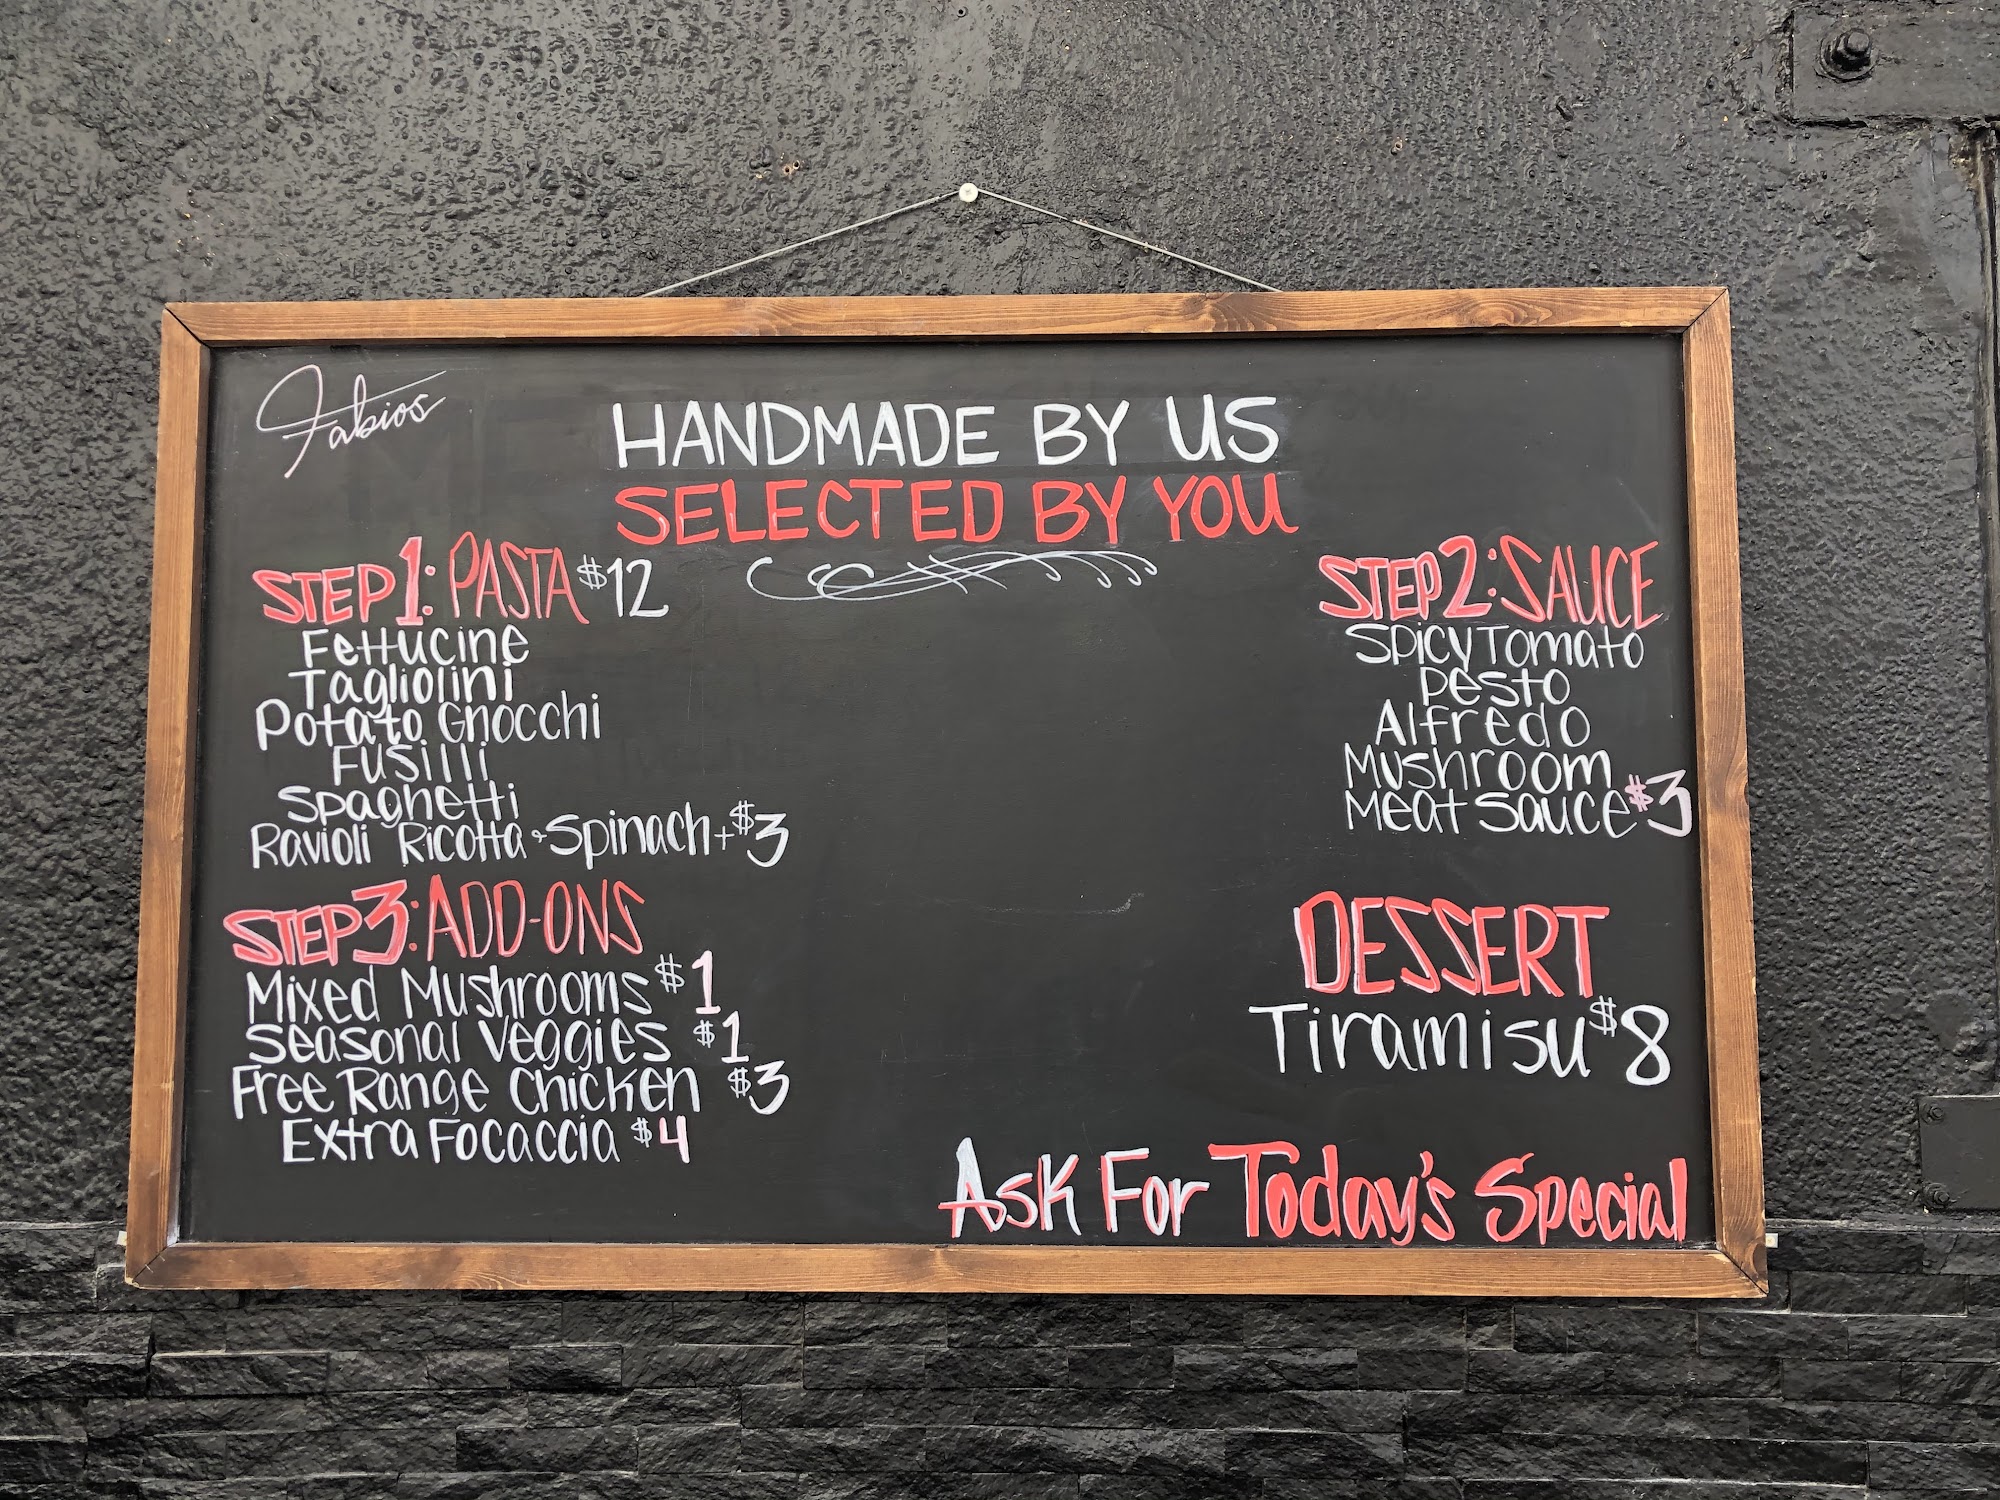 Fabios
HANDMADE BY US
SELECTED BY YOU
STEP 1: PASTA $12
Fettucine
Tagliolini
Potato Gnocchi
Fusilli
Spaghetti
Ravioli Ricotta & Spinach + $3
STEP 2: SAUCE
Spicy Tomato
Pesto
Alfredo
Mushroom
Meat Sauce $3
STEP 3: ADD-ONS
Mixed Mushrooms $1
Seasonal Veggies $1
Free Range Chicken $3
Extra Focaccia $4
DESSERT
Tiramisu $8
Ask For Today's Special